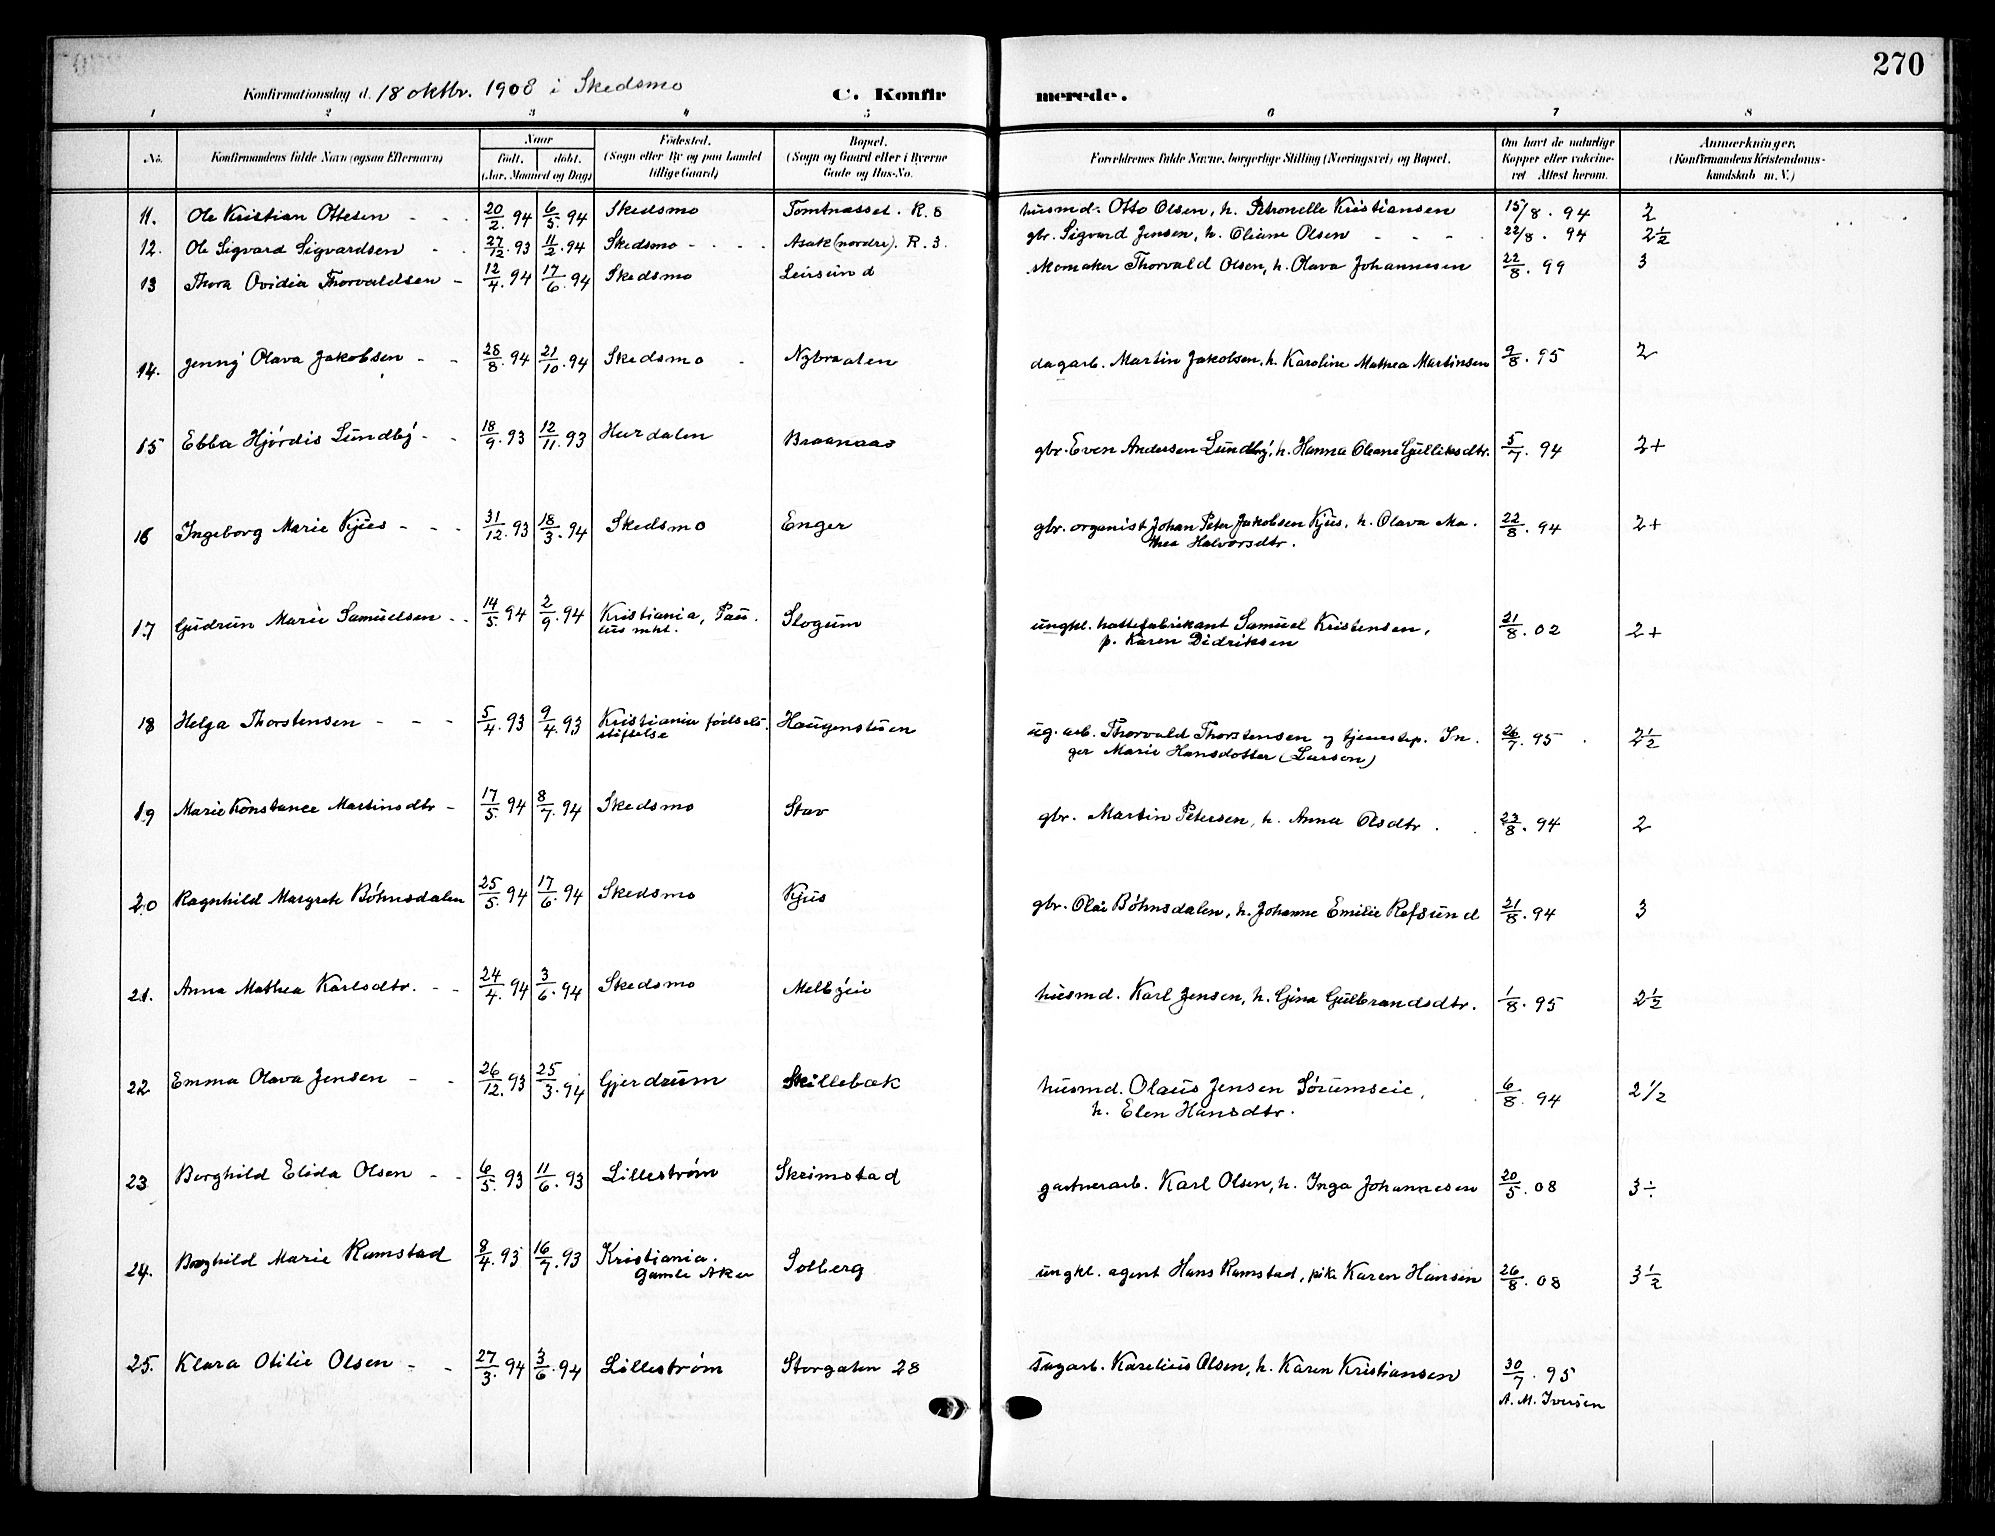 270
Konfirmationsdag d. 18 oktbr. 1908 i Skedsmo C. Konfirmerede.
1 2 3 4 5 6 7 8
No. Konfirmandens fulde Navn (ogsaa Efternavn) Naar født, døbt. (Aar, Maaned og Dag) Fødested. (Sogn eller By og paa Landet tillige Gaard) Bopæl. (Sogn og Gaard eller i Byerne Gade og Hus-No. Forældrenes fulde Navne, borgerlige Stilling (Næringsvei) og Bopæl. Om havt de naturlige Kopper eller vakcineret Attest herom. Anmærkninger, (Konfirmandens Kristendomskundskab m. V.)
11. Ole Kristian Ottesen - - - 20/2. 94 6/5. 94 Skedsmo Tomtnæsset. R. 8 husmd. Otto Olsen, h. Petronelle Kristiansen 15/8. 94 2
12. Ole Sigvard Sigvardsen - - 27/12. 93 11/2. 94 Skedsmo - - - - Asak (nordre). R. 3. gbr. Sigvard Jensen, h. Oliane Olsen - - - - 22/8. 94 2½
13 Thora Ovidia Thorvaldsen - 12/4. 94 17/6. 94 Skedsmo Leirsund skomaker Thorvald Olsen, h. Olava Johannesen 22/8. 99 3
14. Jenny Olava Jakobsen - - 28/8. 94 21/10. 94 Skedsmo - Nybraaten dagarb. Martin Jakobsen, h. Karoline Mathea Martinsen 9/8. 95 2
15 Ebba Hjørdis Lundby - - 18/9. 93 12/11. 93 Hurdalen Braanaas gbr. Even Andersen Lundby, h. Hanna Oleane Gulliksdtr. 5/7. 94 2+
16 Ingeborg Marie Kjus - - - 31/12. 93 18/3. 94 Skedsmo Enger gbr. organist Johan Peter Jakobsen Kjus, h. Olava Ma-
thea Halvorsdtr. 22/8. 94 2+
17 Gudrun Marie Samuelsen - - 14/5. 94 2/9. 94 Kristiania, Pau-
lus mht. Slogum ungkl. hattefabrikant Samuel Kristensen,
p. Karen Didriksen 21/8. 02 2+
18 Helga Thorstensen - - - 5/4. 93 9/4. 93 Kristiania fødsels-
stiftelse Haugenstuen ug. arb. Thorvald Thorstensen og tjenestep. In-
ger Marie Hansdotter (Larsen) 26/7. 95 2½
19 Marie Konstance Martinsdtr - 17/5. 94 8/7. 94 Skedsmo Stav gbr. Martin Petersen, h. Anna Olsdtr. 23/8. 94 2
20 Ragnhild Margrete Bøhnsdalen 25/5. 94 17/6. 94 Skedsmo Kjus gbr. Olai Bøhnsdalen, h. Johanne Emilie Refsund 21/8. 94 3
21. Anna Mathea Karlsdtr. - - 24/4. 94 3/6. 94 Skedsmo Melbyeie husmd. Karl Jensen, h. Gina Gulbrandsdtr. 1/8. 95 2½
22 Emma Olava Jensen - - 26/12. 93 25/3. 94 Gjerdrum Skillebæk husmd. Olaus Jensen Sørumseie,
h. Elen Hansdtr. 6/8. 94 2 1/2
23 Borghild Elida Olsen - - 6/5. 93 11/6. 93 Lillestrøm Skrimstad gartnerarb. Karl Olsen, h. Inga Johannesen 20/5. 08 3÷
24. Borghild Marie Ramstad 9/4. 93 16/7. 93 Kristiania.
Gamle Aker Solberg ungkl. agent Hans Ramstad, pike Karen Hansen 26/8. 08 3½
25. Klara Otilie Olsen - - 27/3. 94 3/6. 94 Lillestrøm Storgaten 28 sagarb. Karelius Olsen, h. Karen Kristiansen 30/7. 95
A. M. Iversen